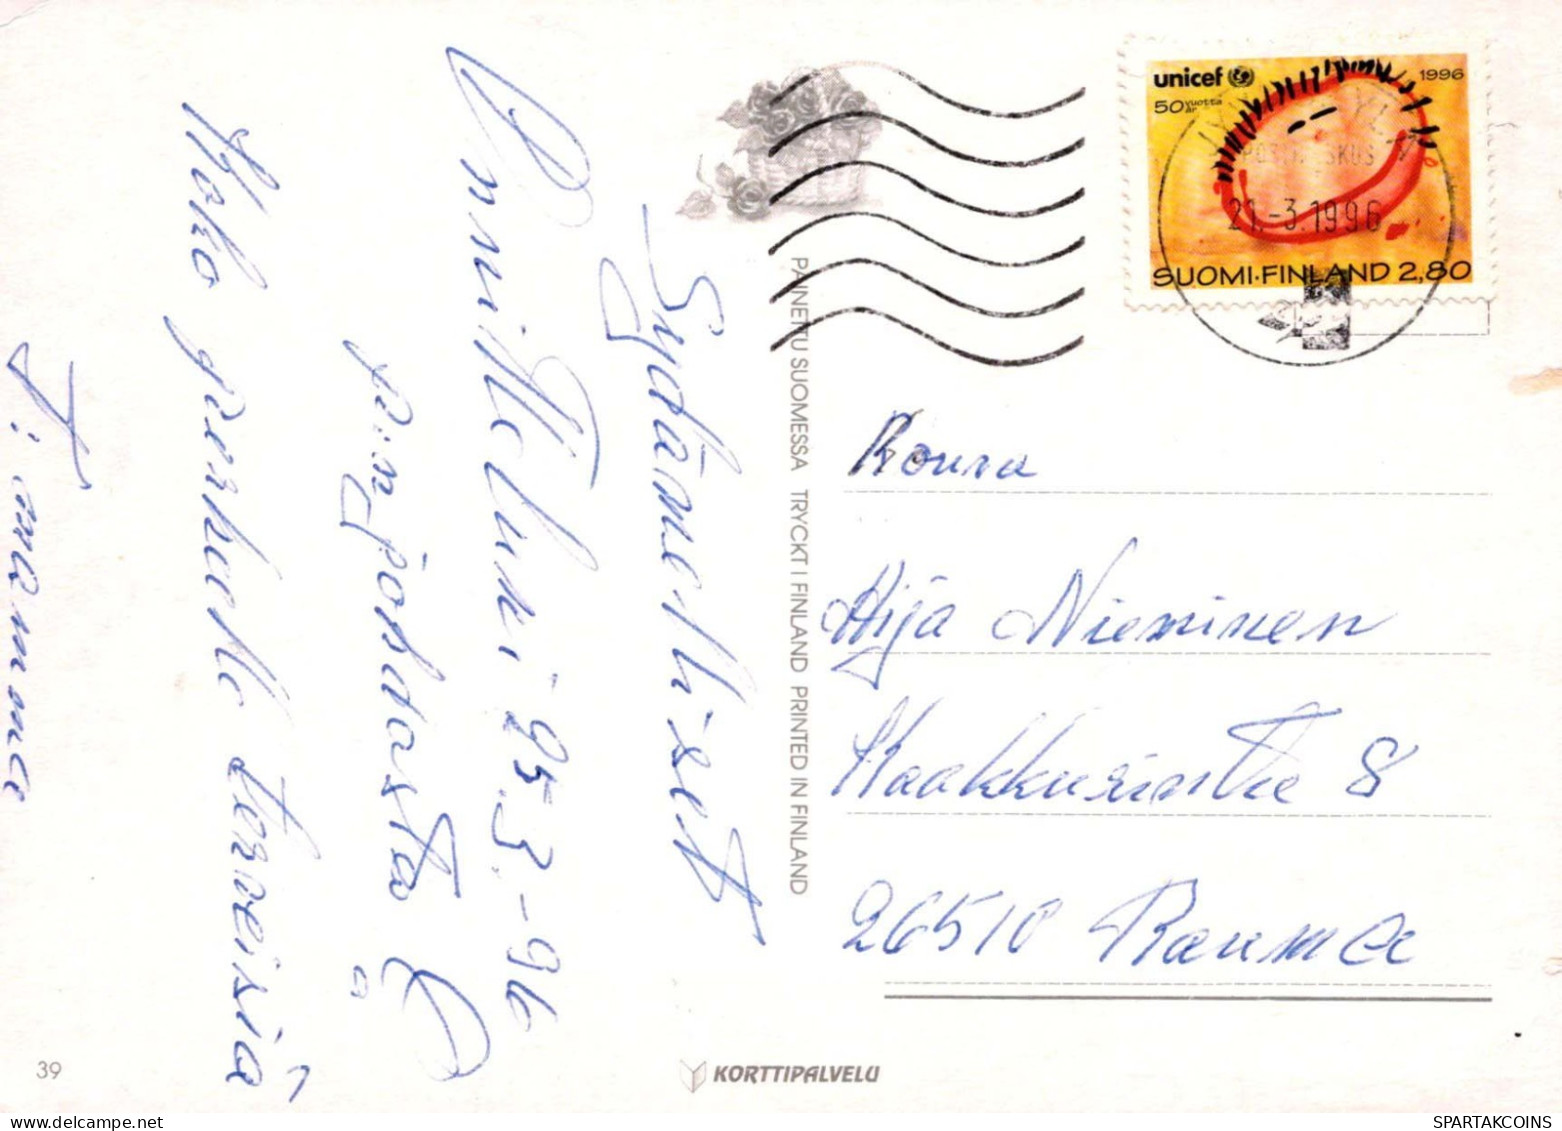 Sydämelliset
Onnittelut 25.3.-96
Koko perheelle terveisiä
T: mamma
unicef
50 vuotta
år
1996
21.-3.1996
SUOMI·FINLAND 2,80
Rouva
Aija Nieminen
Kaakkurintie 8
26510 Rauma
PAINETTU SUOMESSA TRYCKT I FINLAND PRINTED IN FINLAND
39
KORTTIPALVELU
SPARTAKCOINS